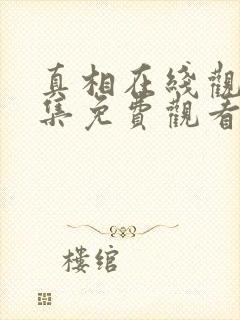 真相在綫觀
集免費觀看
樓綰